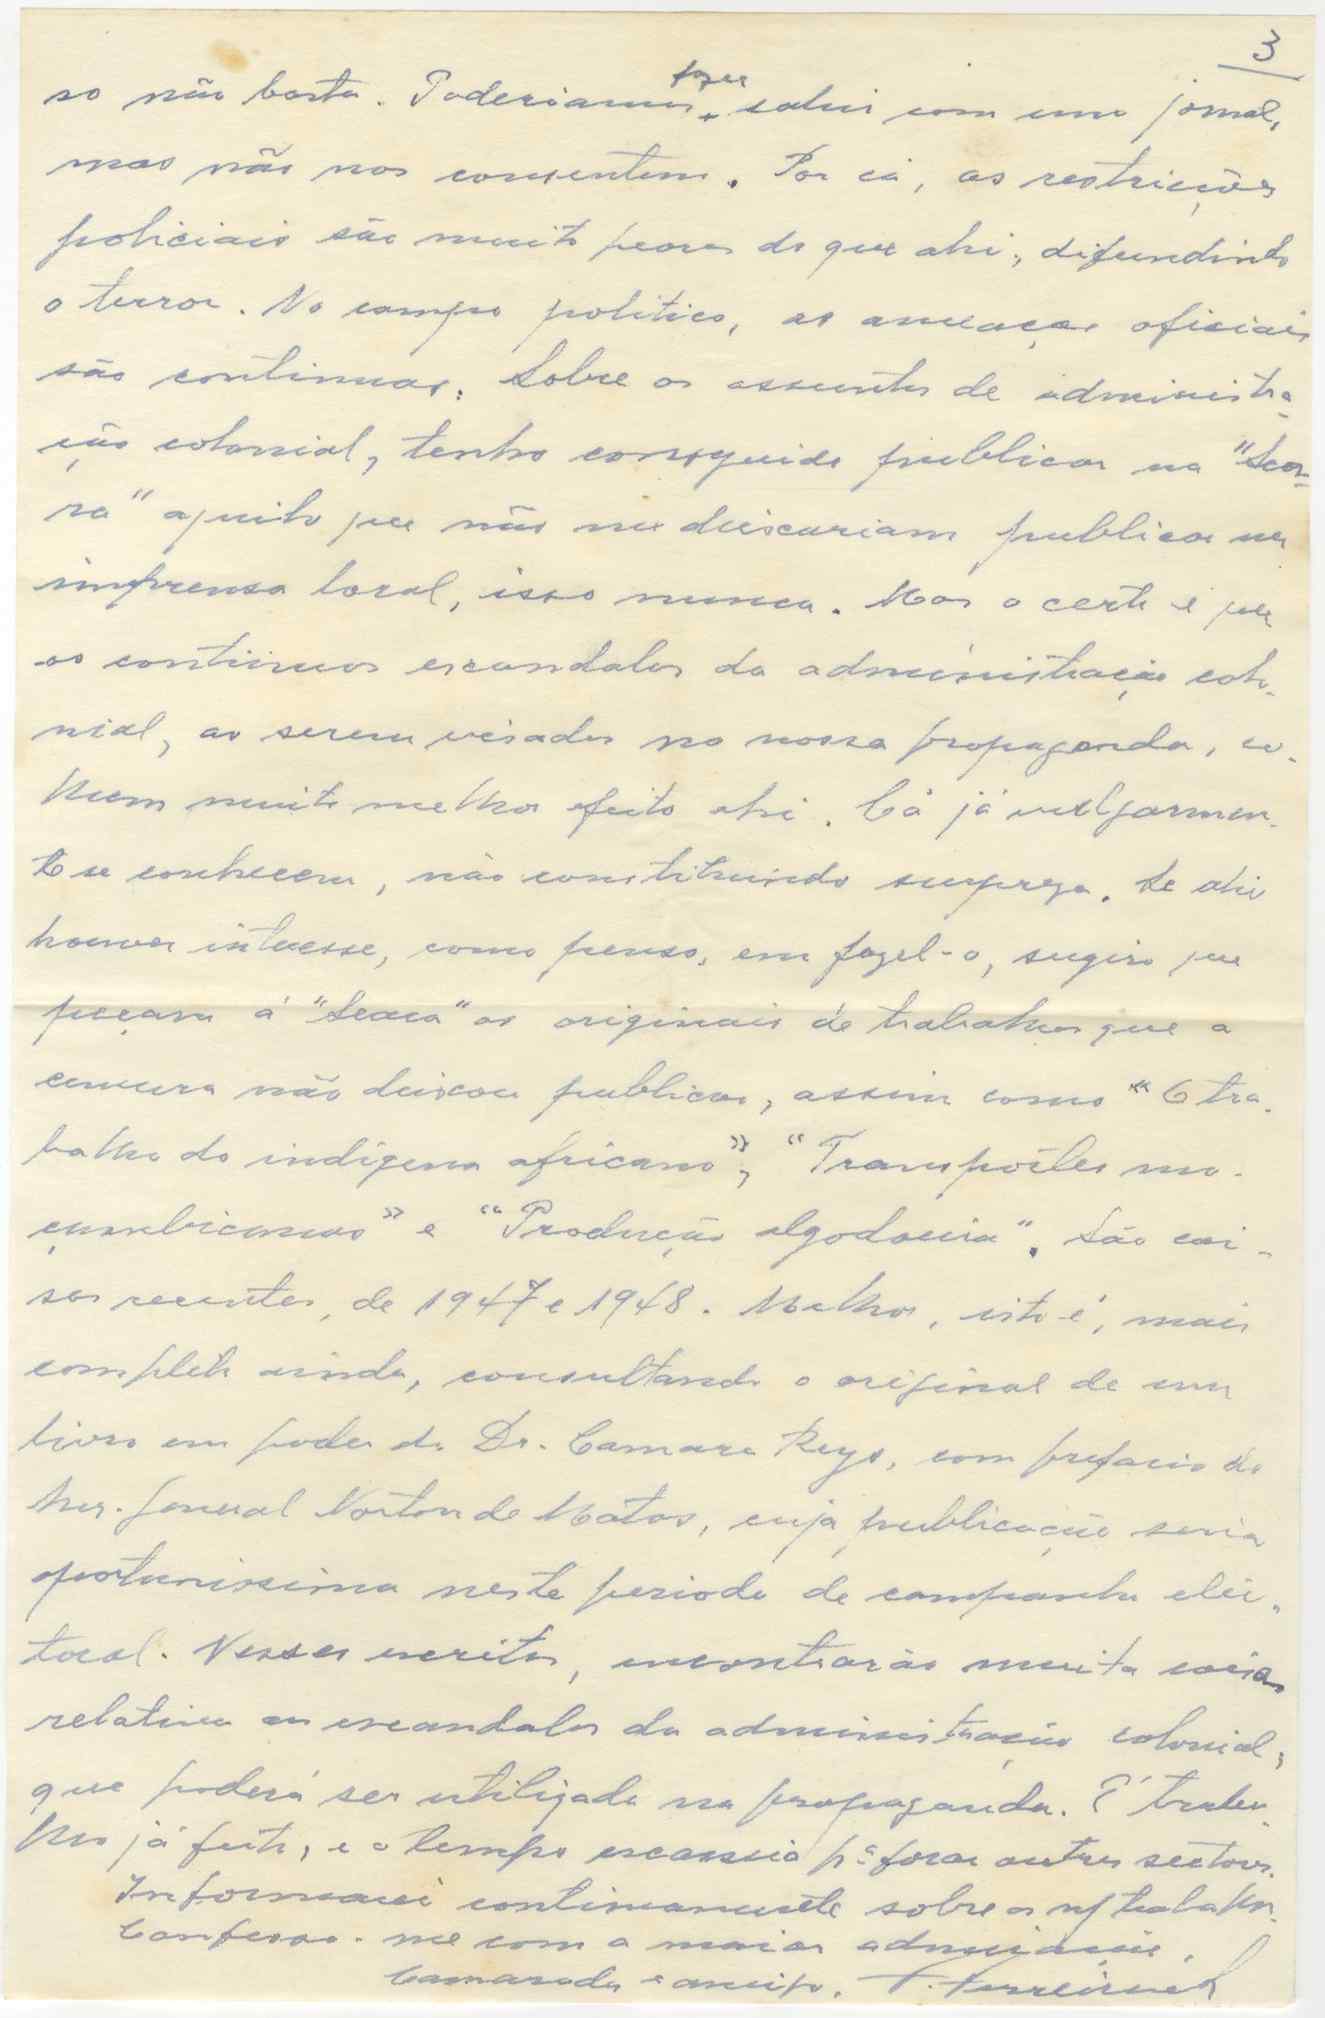 3
so não basta. Poderiamos fazer sahir com um jornal,
mas não nos consentem. Por cá, as restricções
policiais são muito peores do que ahi, difundindo
o terror. No campo politico, as ameaças oficiais
são continuas. Sobre os assuntos de administra-
ção colonial, tenho conseguido publicar na "Sea-
ra" aquilo que não me deixariam publicar na
imprensa local, isso nunca. Mas o certo é que
os continuos escandalos da administração colo-
nial, ao serem visados na nossa propaganda, co-
lhem muito melhor efeito ahi. Cá já vulgarmen-
te se conhecem, não constituindo surpreza. Se ahi
houver interesse, como penso, em fazel-o, sugiro que
peçam á "Seara" os originais de trabalhos que a
censura não deixou publicar, assim como "O tra-
balho do indígena africano", "Transportes mo-
çambicanos" e "Produção algodoeira". São coi-
sas recentes, de 1947 e 1948. Melhor, isto é, mais
completo ainda, consultando o original de um
livro em poder do Dr. Camara Reys, com prefacio do
Snr. General Norton de Matos, cuja publicação seria
oportunissima neste periodo de campanha elei-
toral. Nesses escritos, encontrarão muita coisa
relativa aos escandalos da administração colonial,
que poderá ser utilizada na propaganda. É traba-
lho já feito, e o tempo escasseia pª outros sectores.
Informarei continuamente sobre o n/ trabalho.
Confesso-me com a maior admiração.
Camarada e amigo,